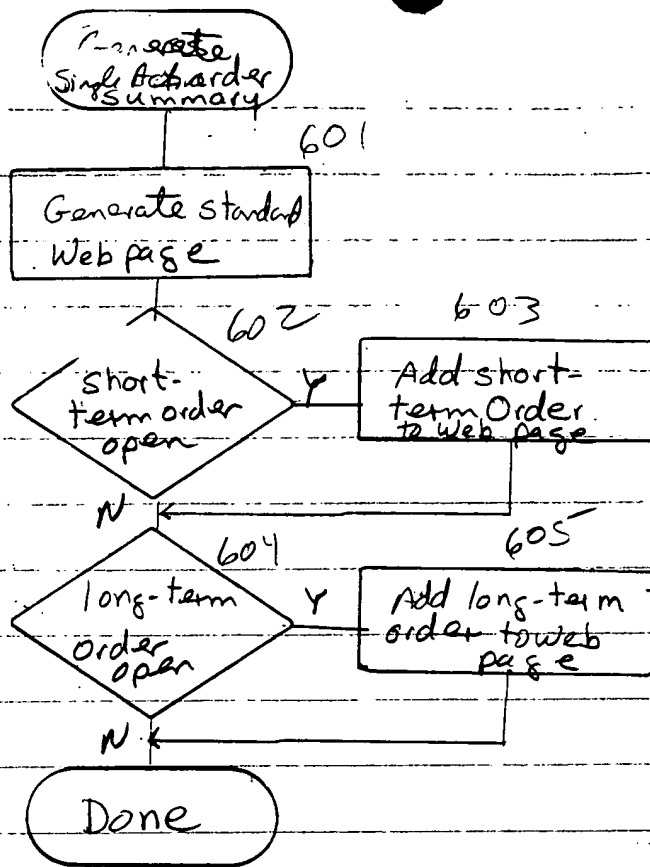 Generate
Single Action order
summary
601
Generate standard
Web page
602
603
short-
term order
open
Y
Add short-
term Order
to Web page
N
604
605
long-term
order
open
Y
Add long-term
order to web
page
N
Done